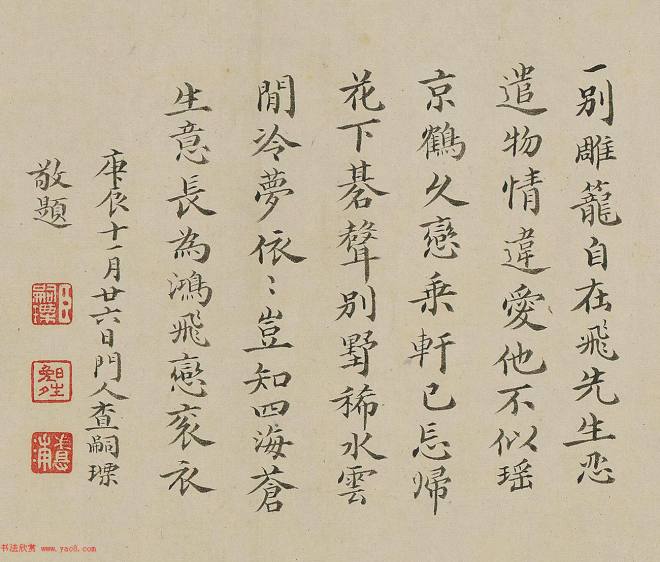 一別雕籠自在飛先生恐
遣物情違愛他不似瑶
京鶴久戀乗軒已忘歸
花下碁聲別墅稀水雲
閒冷夢依〻豈知四海蒼
生意長為鴻飛戀衮衣
庚辰十一月廿六日門人查嗣瑮
敬題
书法欣赏 www.yac8.com